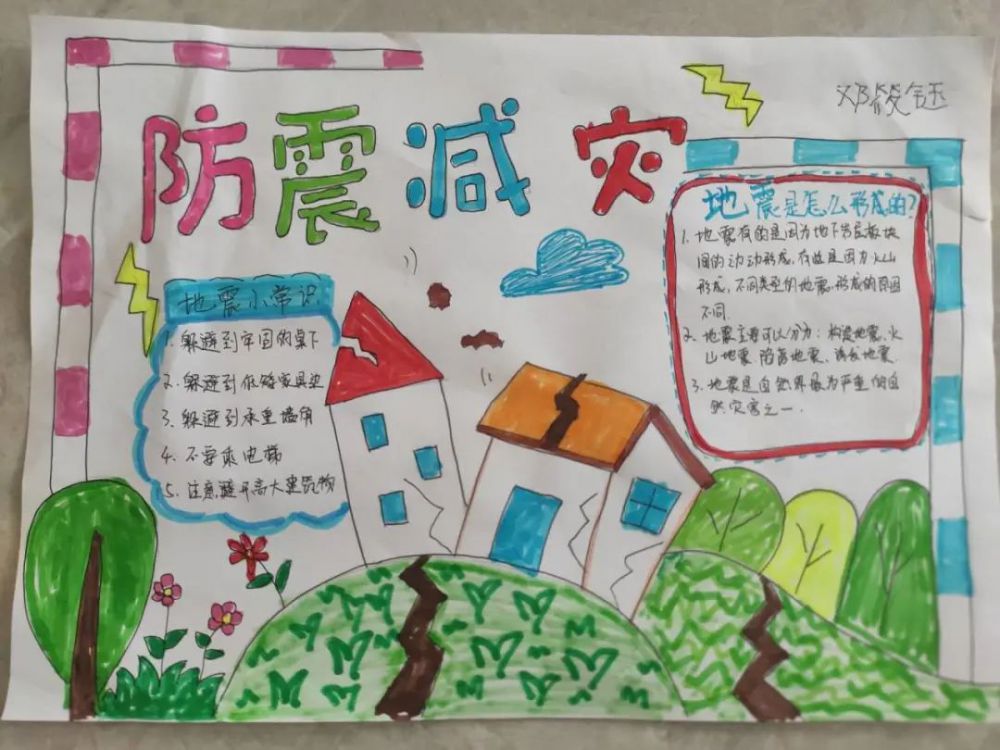 防震减灾
地震小常识
1. 躲避到牢固的桌下
2. 躲避到低矮家具边
3. 躲避到承重墙角
4. 不要乘电梯
5. 注意避开高大建筑物
地震是怎么形成的?
1. 地震有的是因为地下岩层板块
间的动形成,有些是因为火山
形成,不同类型的地震,形成的原因
不同.
2. 地震主要可以分为:构造地震、火
山地震、陷落地震、诱发地震.
3. 地震是自然界最为严重的自
然灾害之一.